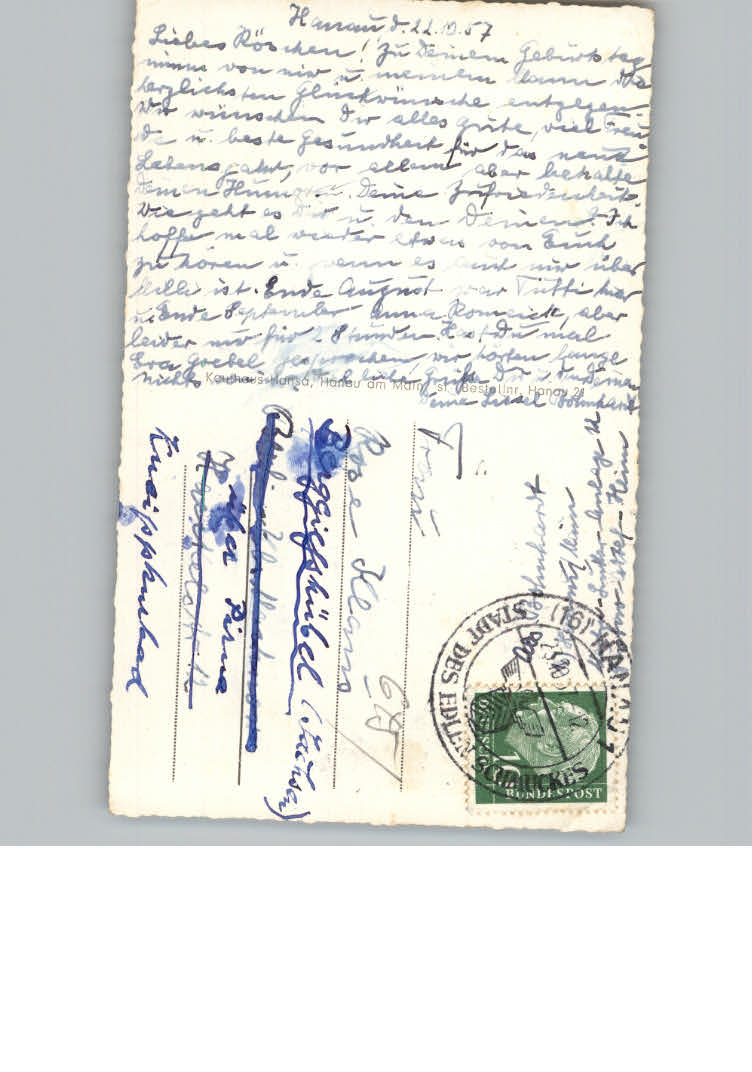 Hanau d. 22.10.57
Liebes Röschen! Zu Deinem Geburtstag
nimm von mir u. meinem Mann die
herzlichsten Glückwünsche entgegen.
Wir wünschen Dir alles gute, viel Freu
de u. beste Gesundheit für das neue
Lebensjahr, vor allem aber behalte
Deinen Humor u. Deine Zufriedenheit.
Wie geht es Dir u. den Deinen? Ich
hoffe mal wieder etwas von Euch
zu hören u. wenn es auch nur über
Milli ist. Ende August war Tutti hier
u. Ende September Anna Romeick, aber
leider nur für 2 Stunden. Hast Du mal
Eva Goebel gesprochen, wir hörten lange
nichts Grüße Dir u. den Deinen
Deine Liesel Bohnhardt
Kaufhaus Hansa, Hanau am Main Bestellnr. Hanau 21
Frau
Rosel
Berggießhübel (Sachsen)
über Pirna
Kneippbad
Bohnhardt
HANAU 1
(16)
STADT DES EDLEN SCHMUCKES
BUNDESPOST